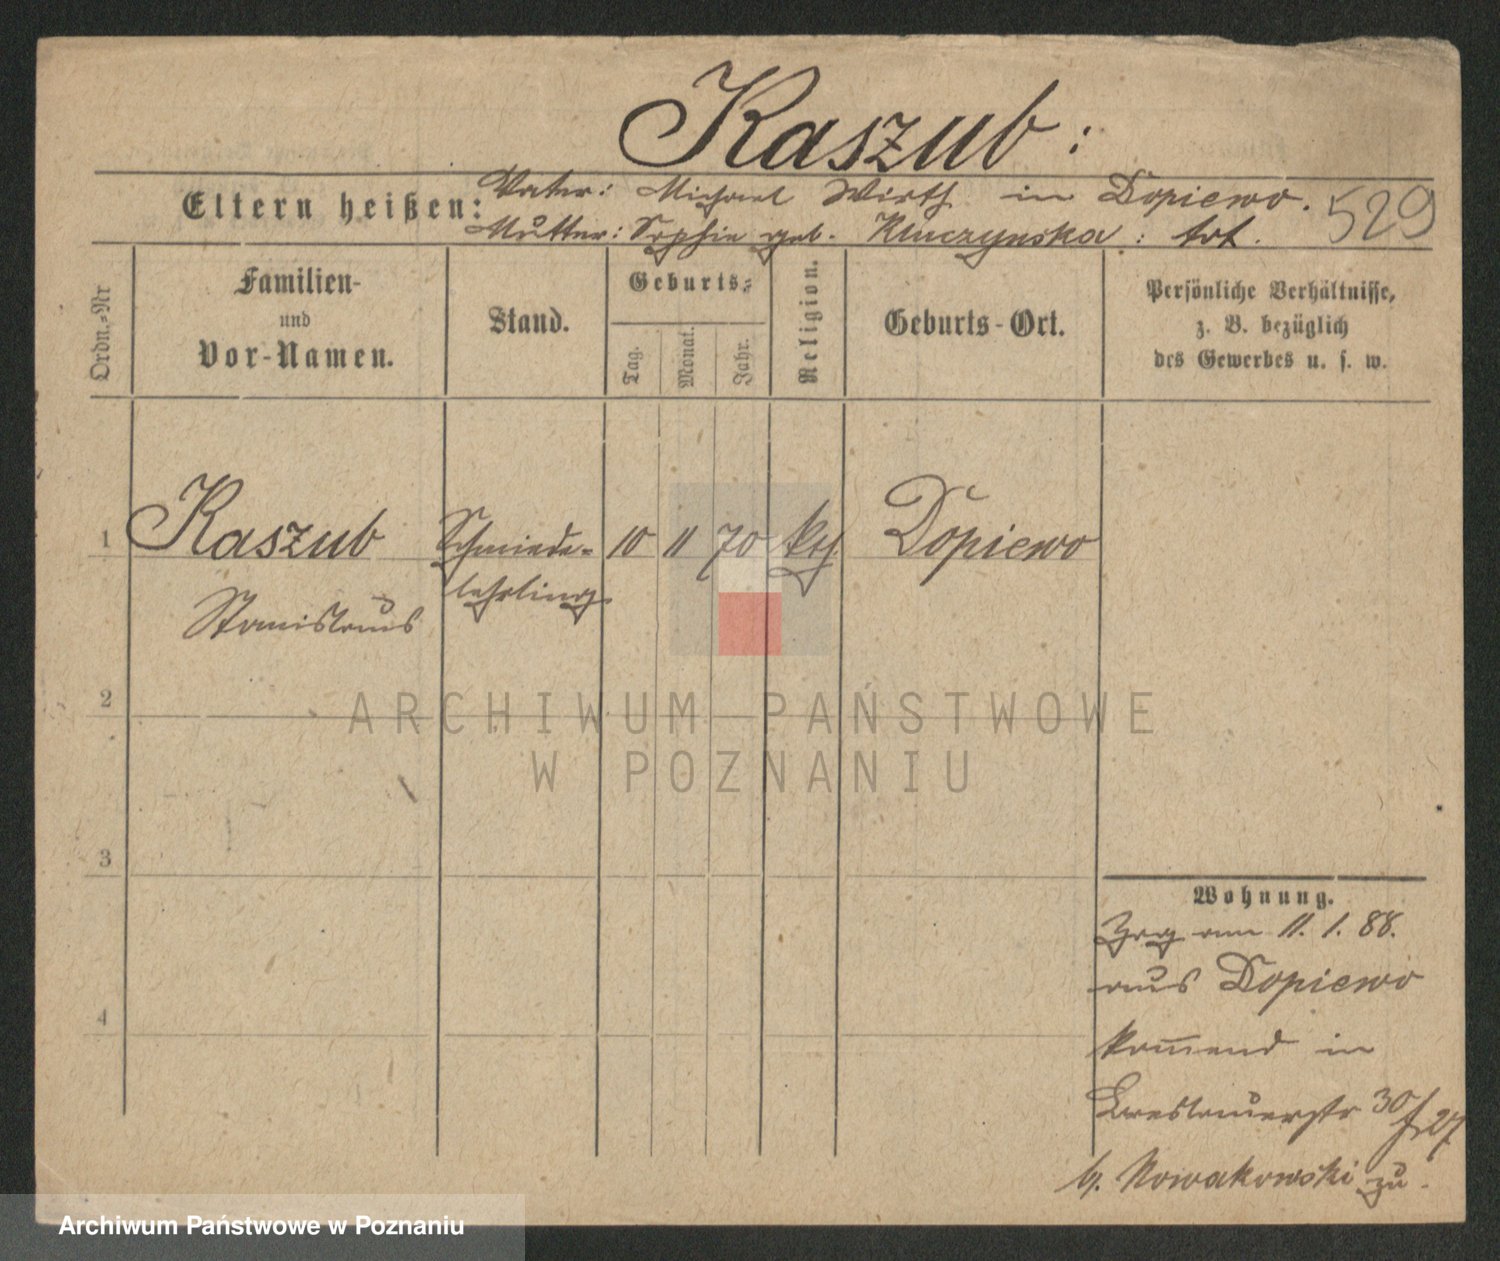 Kaszub:
Eltern heißen:
Vater: Michael Wirth in Dopiewo.
Mutter: Sophie geb. Kluczynska: tot.
529
Ordn.-Nr
Familien-
und
Vor-Namen.
Stand.
Geburts-
Tag.
Monat.
Jahr.
Religion.
Geburts-Ort.
Persönliche Verhältnisse,
z. B. bezüglich
des Gewerbes u. s. w.
1 Kaszub Schmiede- 10 11 70 kth Dopiewo
Stanislaus lehrling
2
3
4
Wohnung.
Zzg am 11. 1. 88.
aus Dopiewo
kom̅end in
Breslauerstr 30/27
b. Nowakowski zu.
ARCHIWUM PAŃSTWOWE
W POZNANIU
Archiwum Państwowe w Poznaniu